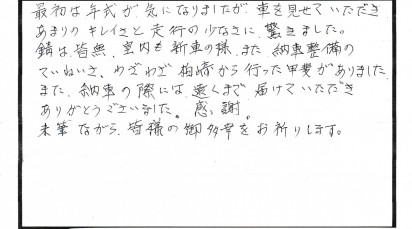 最初は年式が気になりましたが車を見せていただき
あまりのキレイさと走行の少なさに驚きました。
錆は皆無、室内も新車の様、また納車整備の
ていねいさ、わざわざ柏崎から行った甲斐がありました
また、納車の際には遠くまで届けていただき
ありがとうございました。感謝。
末筆ながら、皆様の御多幸をお祈りします。